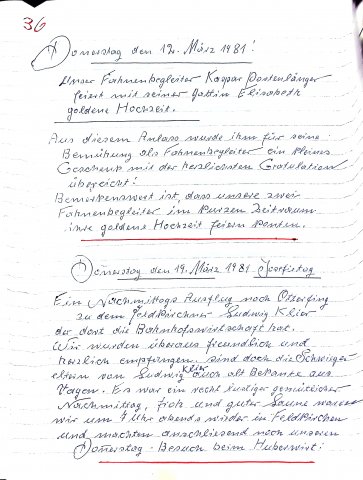 36
Donnerstag den 12. März 1981!
Unser Fahnenbegleiter Kaspar Postenlänger
feiert mit seiner Gattin Elisabeth
goldene Hochzeit.
Aus diesem Anlass wurde ihm für seine
Bemühung als Fahnenbegleiter ein kleines
Geschenk mit der herzlichsten Gratulation
überreicht!
Bemerkenswert ist, dass unsere zwei
Fahnenbegleiter im kurzen Zeitraum
ihre goldene Hochzeit feiern konten.
Donnerstag den 19. März 1981 Josefitag
Ein Nachmittags Ausflug nach Otterfing
zu dem Feldkirchner Ludwig Klier
der dort die Bahnhofswirtschaft hat.
Wir wurden überaus freundlich und
herzlich empfangen. Sind doch die Schwieger
eltern von Ludwig Klier auch alt Bekante aus
Vagen. Es war ein recht lustiger gemütlicher
Nachmittag, froh und guter Laune waren
wir um 7 Uhr abends wieder in Feldkirchen
und machten anschliesend noch unseren
Donnerstag-Besuch beim Huberwirt!